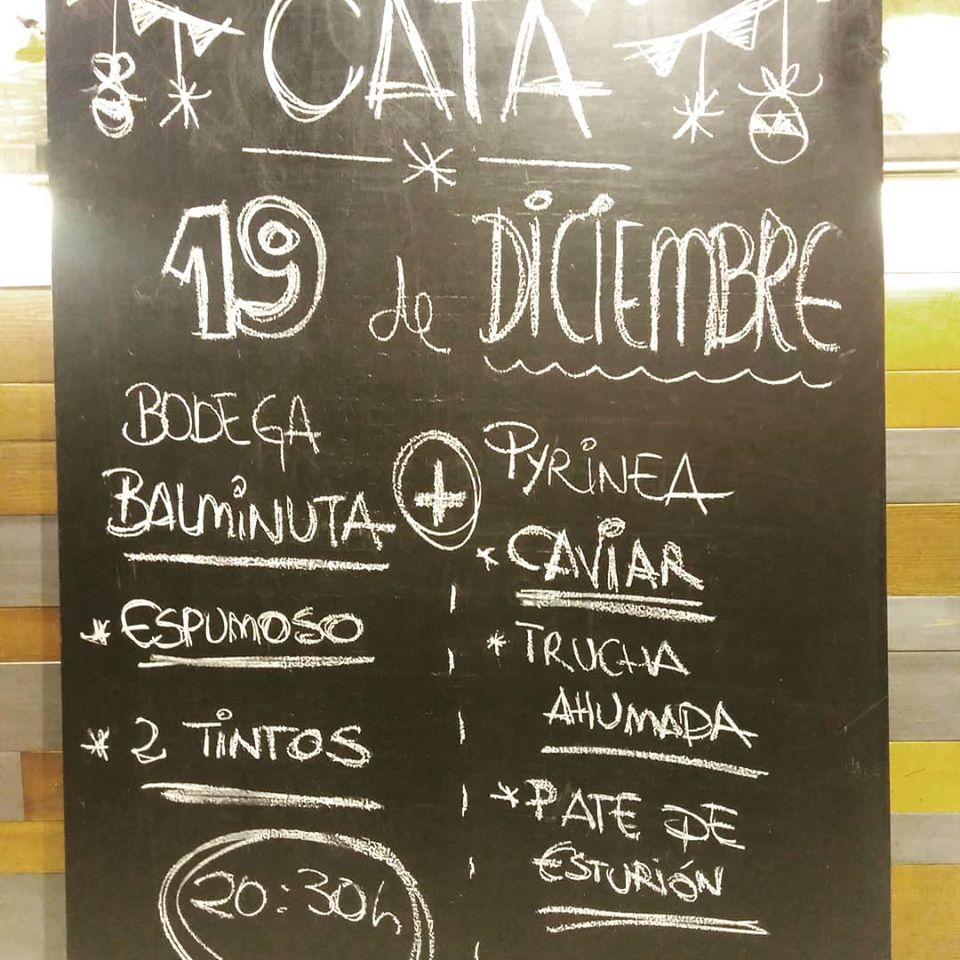 CATA
19 de DICIEMBRE
BODEGA
BALMINUTA
* ESPUMOSO
* 2 TINTOS
20:30h
+
PYRINEA
* CAVIAR
* TRUCHA
AHUMADA
* PATE DE
ESTURIÓN